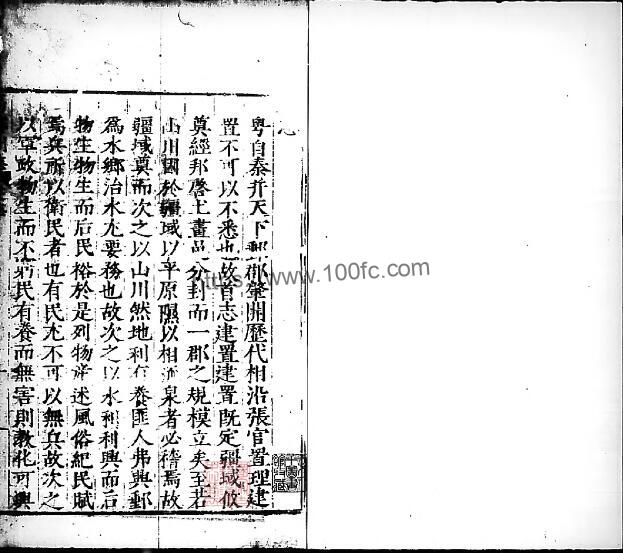 粵自秦并天下郡肇開歷代相沿張官置理建
置不可以不悉也故首志建置建置既定疆域攸
奠經邦啓土畫邑分封而一郡之規模立矣至若
山川國於疆域以平原隰以相流泉者必稽焉故
疆域奠而次之以山川然地利有養匪人弗興鄞
為水鄉治水尤要務也故次之以水利利興而后
物生物生而后民俗於是列物產述風俗紀民賦
焉兵所以衛民者也有民尤不可以無兵故次之
以軍政物生而不窮民有養而無害則教化可興
https://www.100fc.com